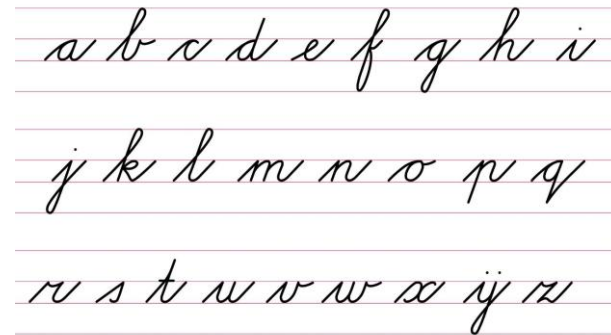 a b c d e f g h i
j k l m n o p q
r s t u v w x ÿ z